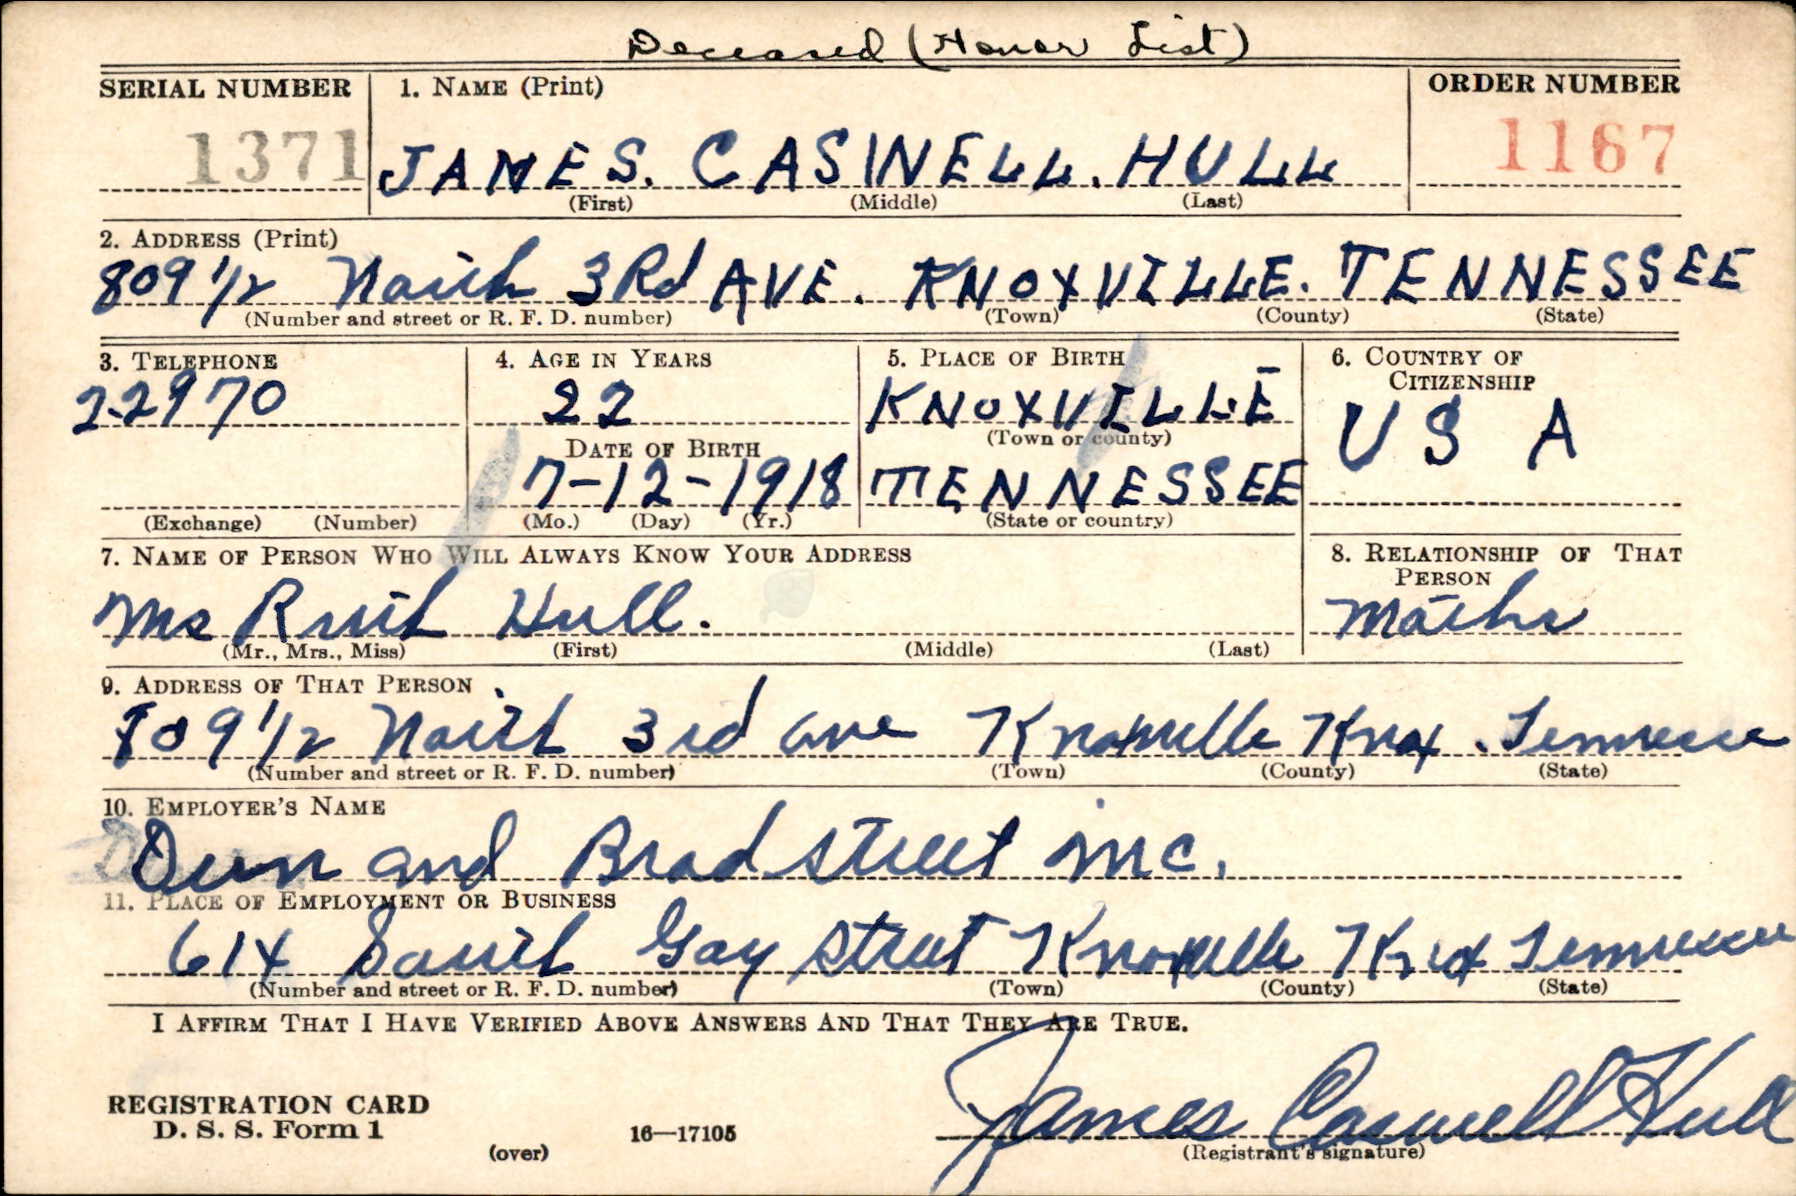 Deceased (Honor List)
SERIAL NUMBER 1. NAME (Print) ORDER NUMBER
1371 JAMES. CASWELL. HULL 1167
(First) (Middle) (Last)
2. ADDRESS (Print)
809 1/2 North 3Rd AVE. KNOXVILLE. TENNESSEE
(Number and street or R. F. D. number) (Town) (County) (State)
3. TELEPHONE 4. AGE IN YEARS 5. PLACE OF BIRTH 6. COUNTRY OF CITIZENSHIP
22970 22 KNOXVILLE U S A
DATE OF BIRTH (Town or county)
7-12-1918 TENNESSEE
(Exchange) (Number) (Mo.) (Day) (Yr.) (State or country)
7. NAME OF PERSON WHO WILL ALWAYS KNOW YOUR ADDRESS 8. RELATIONSHIP OF THAT PERSON
Mrs Ruth Hull. Mother
(Mr., Mrs., Miss) (First) (Middle) (Last)
9. ADDRESS OF THAT PERSON
809 1/2 North 3rd ave Knoxville Knox. Tennessee
(Number and street or R. F. D. number) (Town) (County) (State)
10. EMPLOYER'S NAME
Dun and Bradstreet inc.
11. PLACE OF EMPLOYMENT OR BUSINESS
614 South Gay Street Knoxville Knox Tennessee
(Number and street or R. F. D. number) (Town) (County) (State)
I AFFIRM THAT I HAVE VERIFIED ABOVE ANSWERS AND THAT THEY ARE TRUE.
REGISTRATION CARD
D. S. S. Form 1
(over) 16—17105 James Caswell Hull
(Registrant's signature)